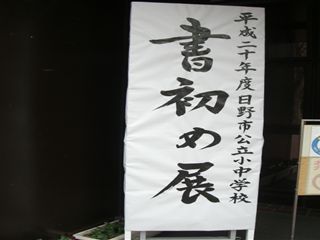 平成二十年度日野市公立小中学校
書初め展